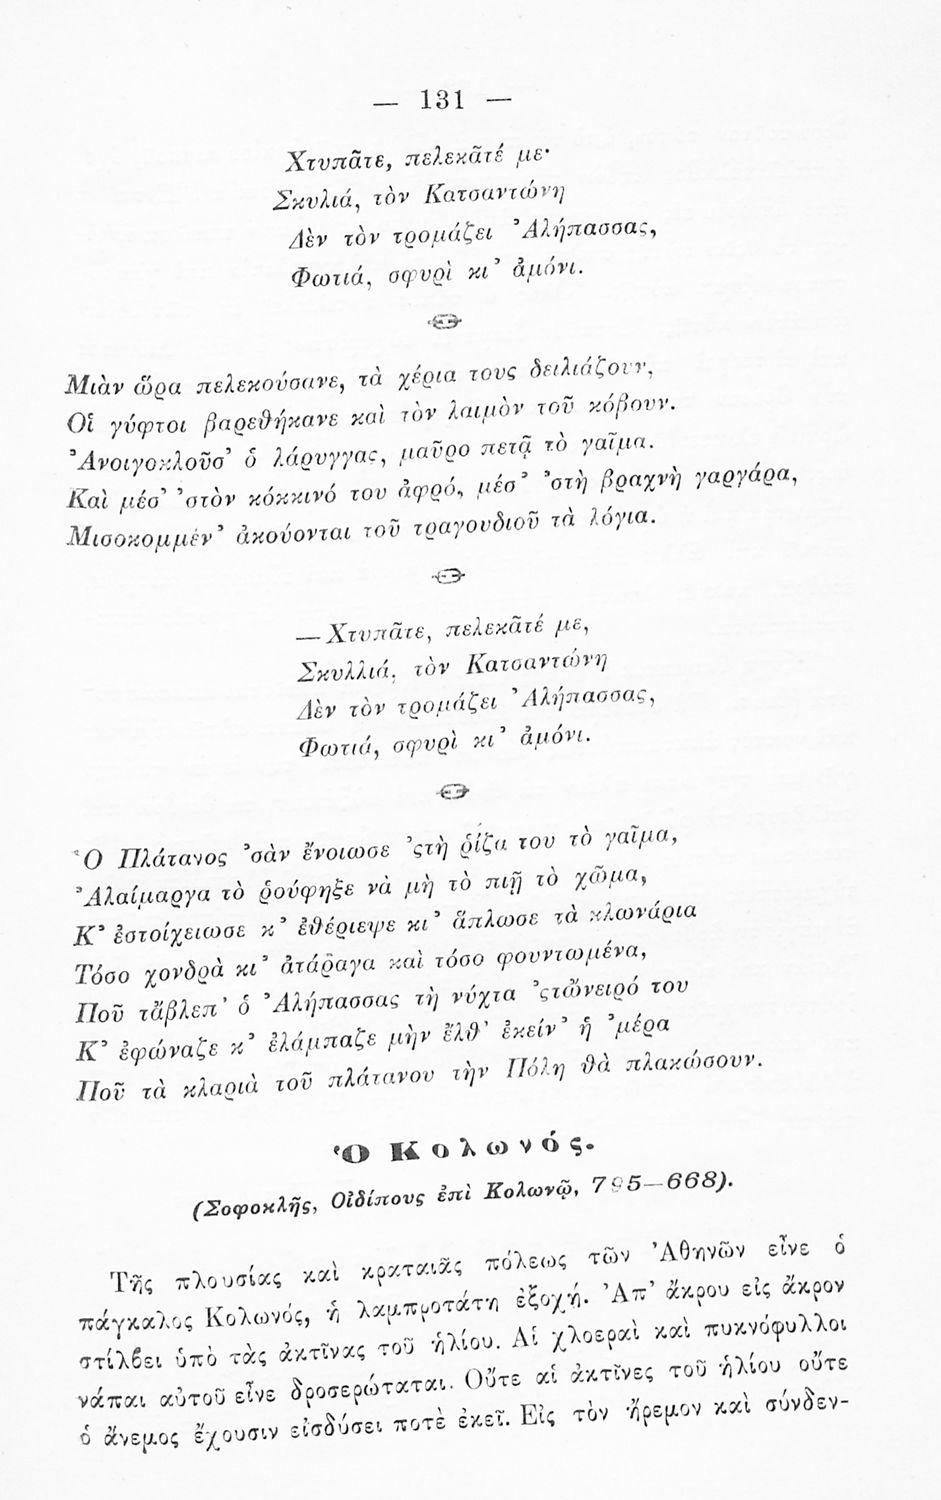 — 131 —
Χτυπᾶτε, πελεκᾶτέ με·
Σκυλιά, τὸν Κατσαντώνη
Δὲν τὸν τρομάζει Ἀλήπασσας,
Φωτιά, σφυρὶ κι᾽ ἀμόνι.
Μιὰν ὥρα πελεκούσανε, τὰ χέρια τους δειλιάζουν,
Οἱ γύφτοι βαρεθήκανε καὶ τὸν λαιμὸν τοῦ κόβουν.
Ἀνοιγοκλοῦσ᾽ ὁ λάρυγγας, μαῦρο πετᾷ τὸ γαῖμα.
Καὶ μέσ᾽ ᾽στὸν κόκκινό του ἀφρό, μέσ᾽ ᾽στὴ βραχνὴ γαργάρα,
Μισοκομμέν᾽ ἀκούονται τοῦ τραγουδιοῦ τὰ λόγια.
— Χτυπᾶτε, πελεκᾶτέ με,
Σκυλλιά, τὸν Κατσαντώνη
Δὲν τὸν τρομάζει Ἀλήπασσας,
Φωτιά, σφυρὶ κι᾽ ἀμόνι.
Ὁ Πλάτανος ᾽σὰν ἔνοιωσε ᾽ςτὴ ῥίζα του τὸ γαῖμα,
Ἀλαίμαργα τὸ ῥούφηξε νὰ μὴ τὸ πιῇ τὸ χῶμα,
Κ᾽ ἐστοίχειωσε κ᾽ ἐθέριεψε κι᾽ ἅπλωσε τὰ κλωνάρια
Τόσο χονδρὰ κι᾽ ἀτάραγα καὶ τόσο φουντωμένα,
Ποῦ τἄβλεπ᾽ ὁ Ἀλήπασσας τὴ νύχτα ᾽ςτὤνειρό του
Κ᾽ ἐφώναζε κ᾽ ἐλάμπαζε μὴν ἔλθ᾽ ἐκείν᾽ ἡ ᾽μέρα
Ποῦ τὰ κλαριὰ τοῦ πλάτανου τὴν Πόλη θὰ πλακώσουν.
Ὁ Κολωνός.
(Σοφοκλῆς, Οἰδίπους ἐπὶ Κολωνῷ, 795—668).
Τῆς πλουσίας καὶ κραταιᾶς πόλεως τῶν Ἀθηνῶν εἶνε ὁ
πάγκαλος Κολωνός, ἡ λαμπροτάτη ἐξοχή. Ἀπ᾽ ἄκρου εἰς ἄκρον
στίλβει ὑπὸ τὰς ἀκτῖνας τοῦ ἡλίου. Αἱ χλοεραὶ καὶ πυκνόφυλλοι
νάπαι αὐτοῦ εἶνε δροσερώταται. Οὔτε αἱ ἀκτῖνες τοῦ ἡλίου οὔτε
ὁ ἄνεμος ἔχουσιν εἰσδύσει ποτὲ ἐκεῖ. Εἰς τὸν ἤρεμον καὶ σύνδεν-